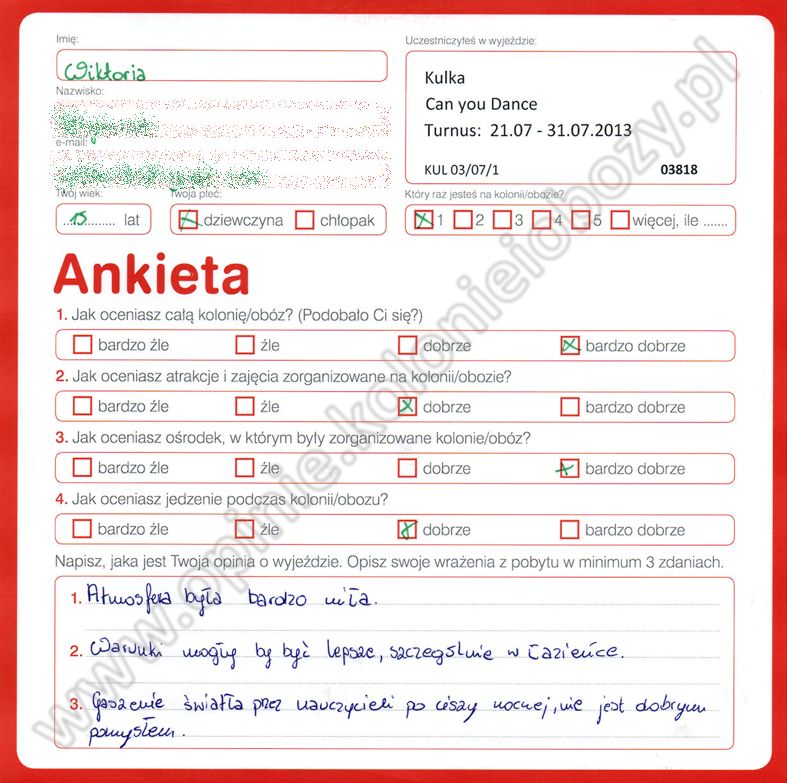 Imię:
Uczestniczyłeś w wyjeździe:
Wiktoria
Kulka
Nazwisko:
Can you Dance
Turnus: 21.07 - 31.07.2013
e-mail:
KUL 03/07/1 03818
Twój wiek:
Twoja płeć:
Który raz jesteś na kolonii/obozie?
...15......... lat
dziewczyna chłopak
1 2 3 4 5 więcej, ile .......
Ankieta
1. Jak oceniasz całą kolonię/obóz? (Podobało Ci się?)
bardzo źle źle dobrze bardzo dobrze
2. Jak oceniasz atrakcje i zajęcia zorganizowane na kolonii/obozie?
bardzo źle źle dobrze bardzo dobrze
3. Jak oceniasz ośrodek, w którym były zorganizowane kolonie/obóz?
bardzo źle źle dobrze bardzo dobrze
4. Jak oceniasz jedzenie podczas kolonii/obozu?
bardzo źle źle dobrze bardzo dobrze
Napisz, jaka jest Twoja opinia o wyjeździe. Opisz swoje wrażenia z pobytu w minimum 3 zdaniach.
1. Atmosfera była bardzo miła.
2. Warunki mogły by być lepsze, szczególnie w łazience.
3. Gaszenie światła przez nauczycieli po ciszy nocnej, nie jest dobrym
pomysłem.
www.opinie.kolonieiobozy.pl